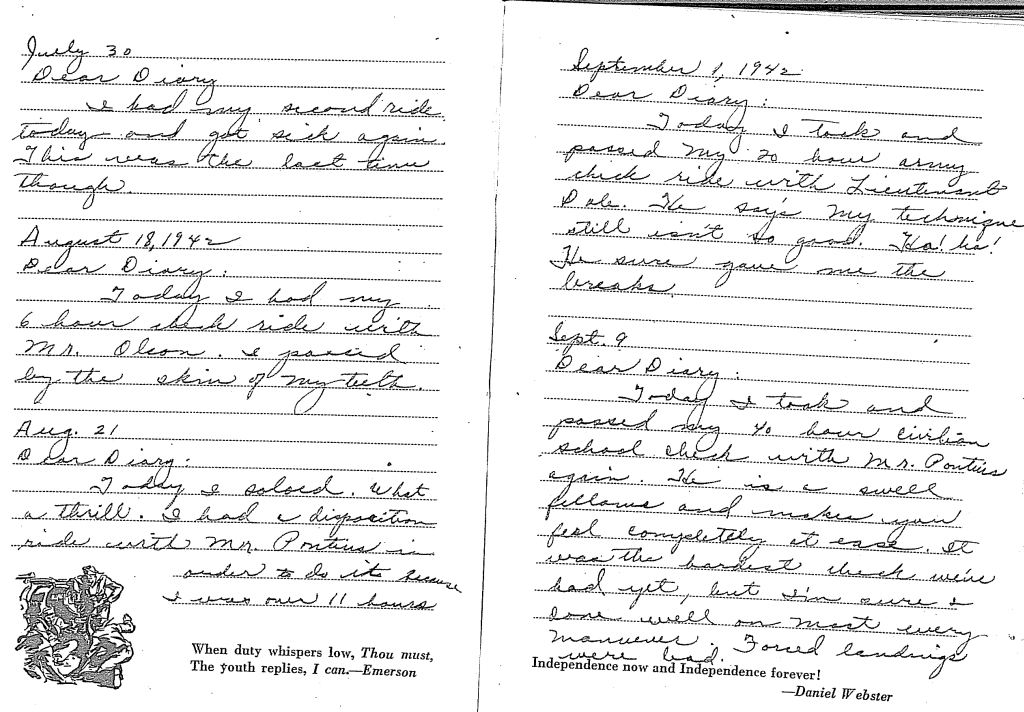 July 30
Dear Diary
I had my second ride
today and got sick again.
This was the last time
though.
August 18, 1942
Dear Diary:
Today I had my
6 hour check ride with
Mr. Olson. I passed
by the skin of my teeth.
Aug. 21
Dear Diary:
Today I soloed. What
a thrill. I had a disposition
ride with Mr. Pontius in
order to do it because
I was over 11 hours
When duty whispers low, Thou must,
The youth replies, I can.—Emerson
September 1, 1942
Dear Diary:
Today I took and
passed my 20 hour army
check ride with Lieutenant
Dale. He says my technique
still isn't so good. Ha! ha!
He sure gave me the
breaks.
Sept. 9
Dear Diary:
Today I took and
passed my 40 hour civilian
school check with Mr. Pontius
again. He is a swell
fellow and makes you
feel completely at ease. It
was the hardest check we've
had yet, but I'm sure I
done well on most every
maneuver. Forced landings
were bad.
Independence now and Independence forever!
—Daniel Webster